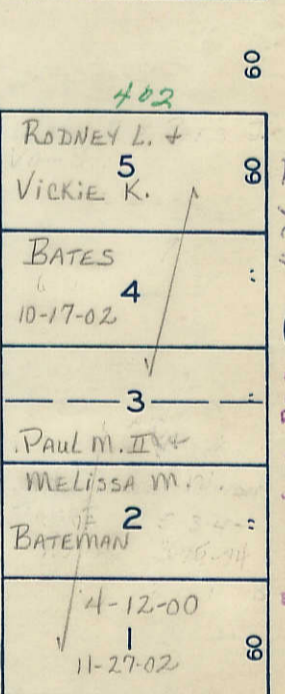 60
402
RODNEY L. &
5
60
VICKIE K.
BATES
4
"
10-17-02
3
"
PAUL M. II &
MELISSA M.
2
"
BATEMAN
4-12-00
1
60
11-27-02